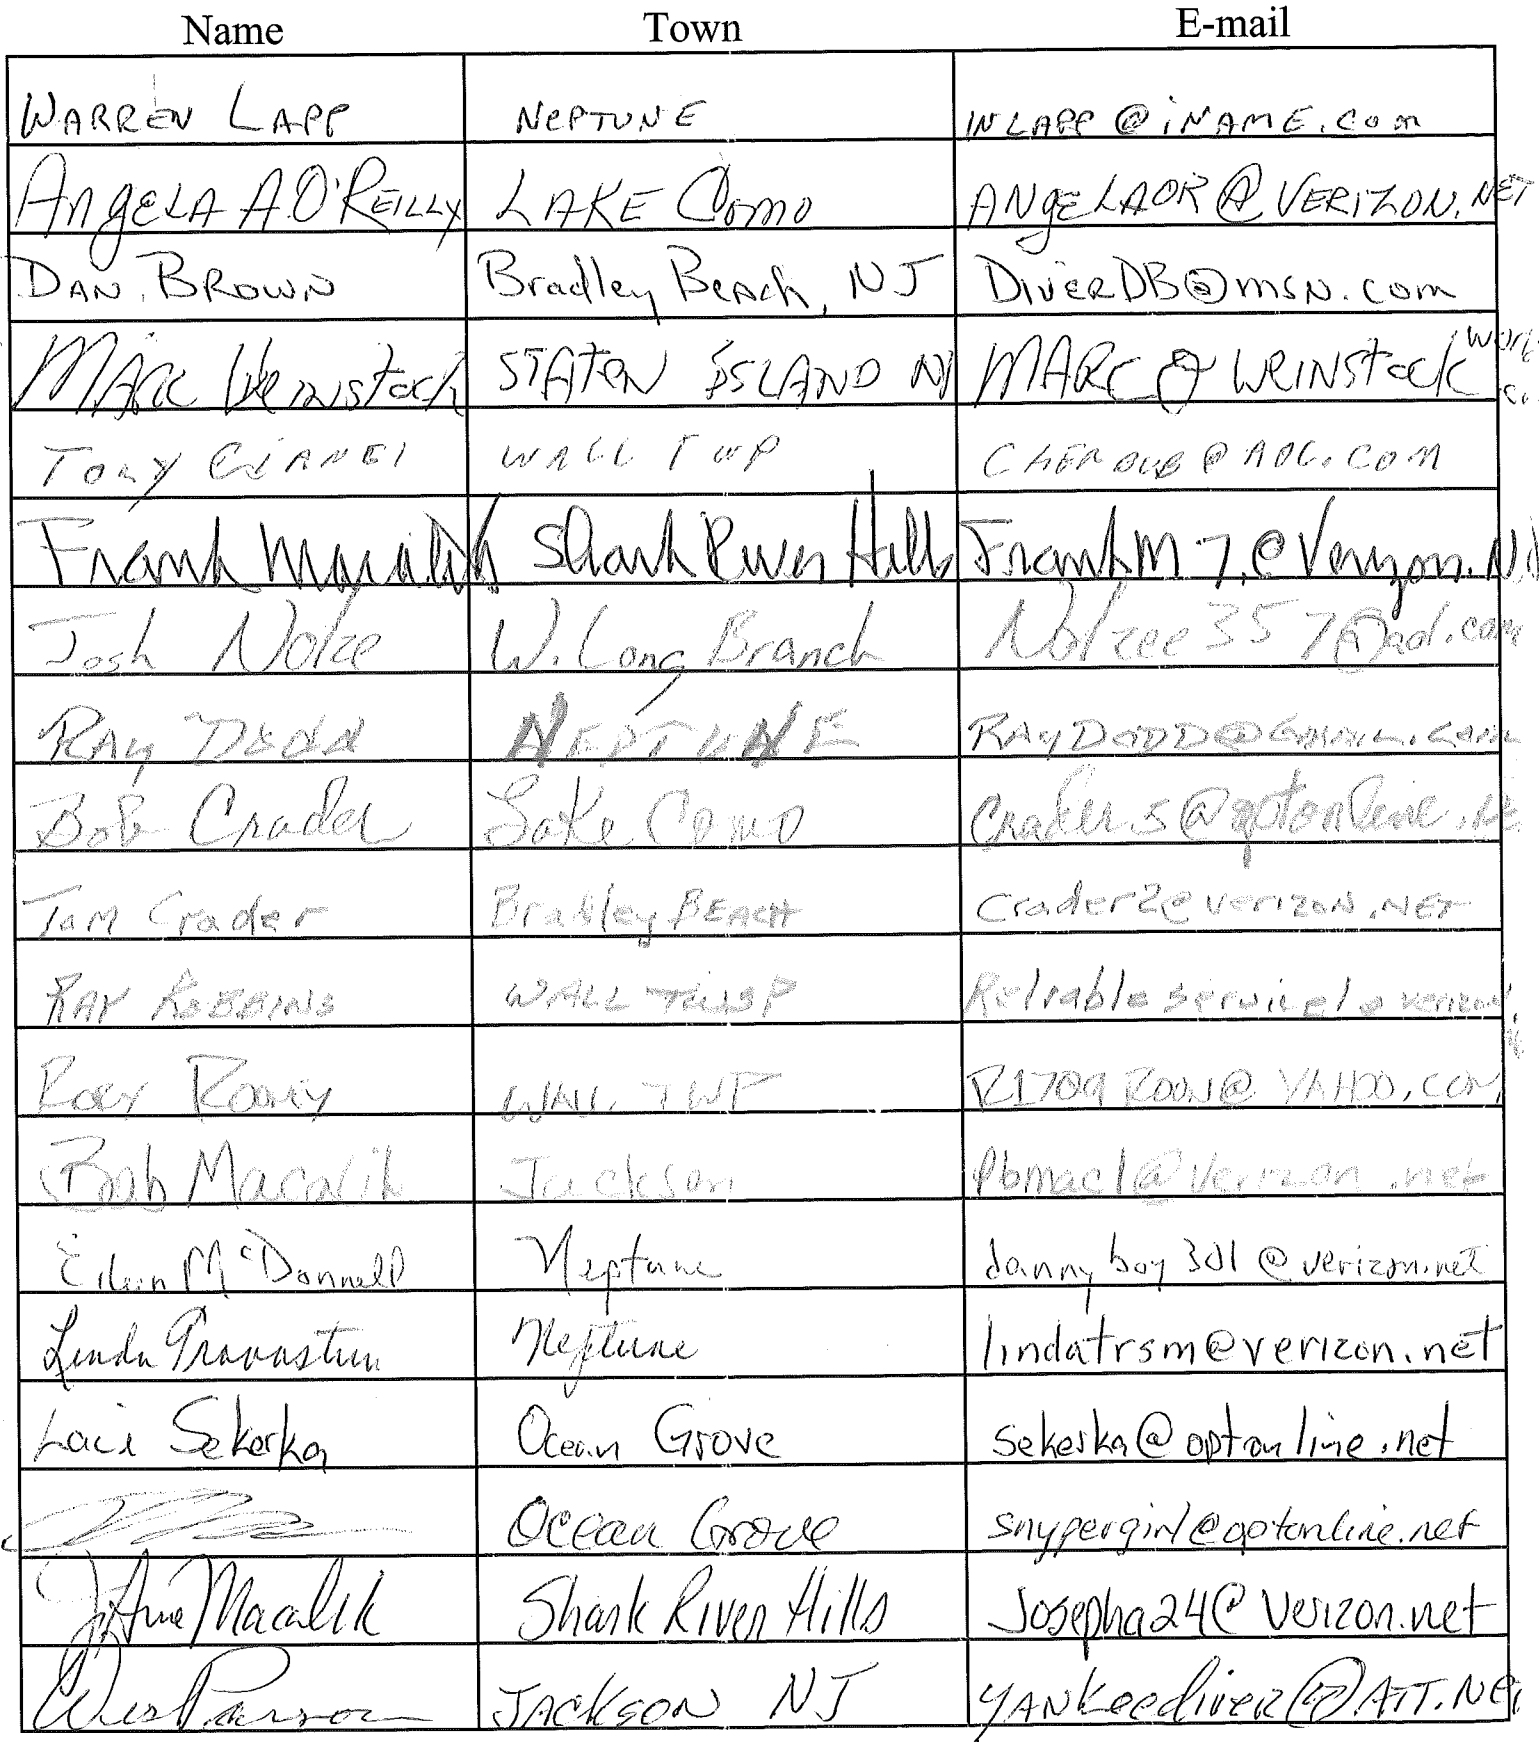 Name Town E-mail
WARREN LAPP NEPTUNE INLAPP@iNAME.com
ANgELA A. O'REILLY LAKE Como ANgELAOR@VERIZON.NET
DAN BROWN Bradley BeAch, NJ DivERDB@msn.com
MARC Weinstock STATEN ISLAND NY MARC@WEINStock
Tony WALL TWP @AOL.COM
Frank Macalik Shark River Hills FrankM7@Verizon.
Josh Nolze W. Long Branch Nolzee357@aol.com
RAy Dodd NEPTUNE RAyDODD@Gmail.com
Bob Crader Lake Como Crader.s@optonline.
Tom Crader Bradley BEACH Crader2@verizon.NET
RAY ROBBINS WALL TWSP Reliableservice1@verizon
Rory Rooney WALL TWP R1709ROON@YAHOO.COM
Bob Macalik Jackson Pbmac1@verizon.net
Eileen McDonnell Neptune dannyboy301@verizon.net
Linda Neptune lindatrsm@verizon.net
Laci Sekerka Ocean Grove sekerka@optonline.net
Ocean Grove snypergirl@optonline.net
Macalik Shark River Hills Josepha24@verizon.net
Wes Parson JACKSON NJ yANKeediver@ATT.NET